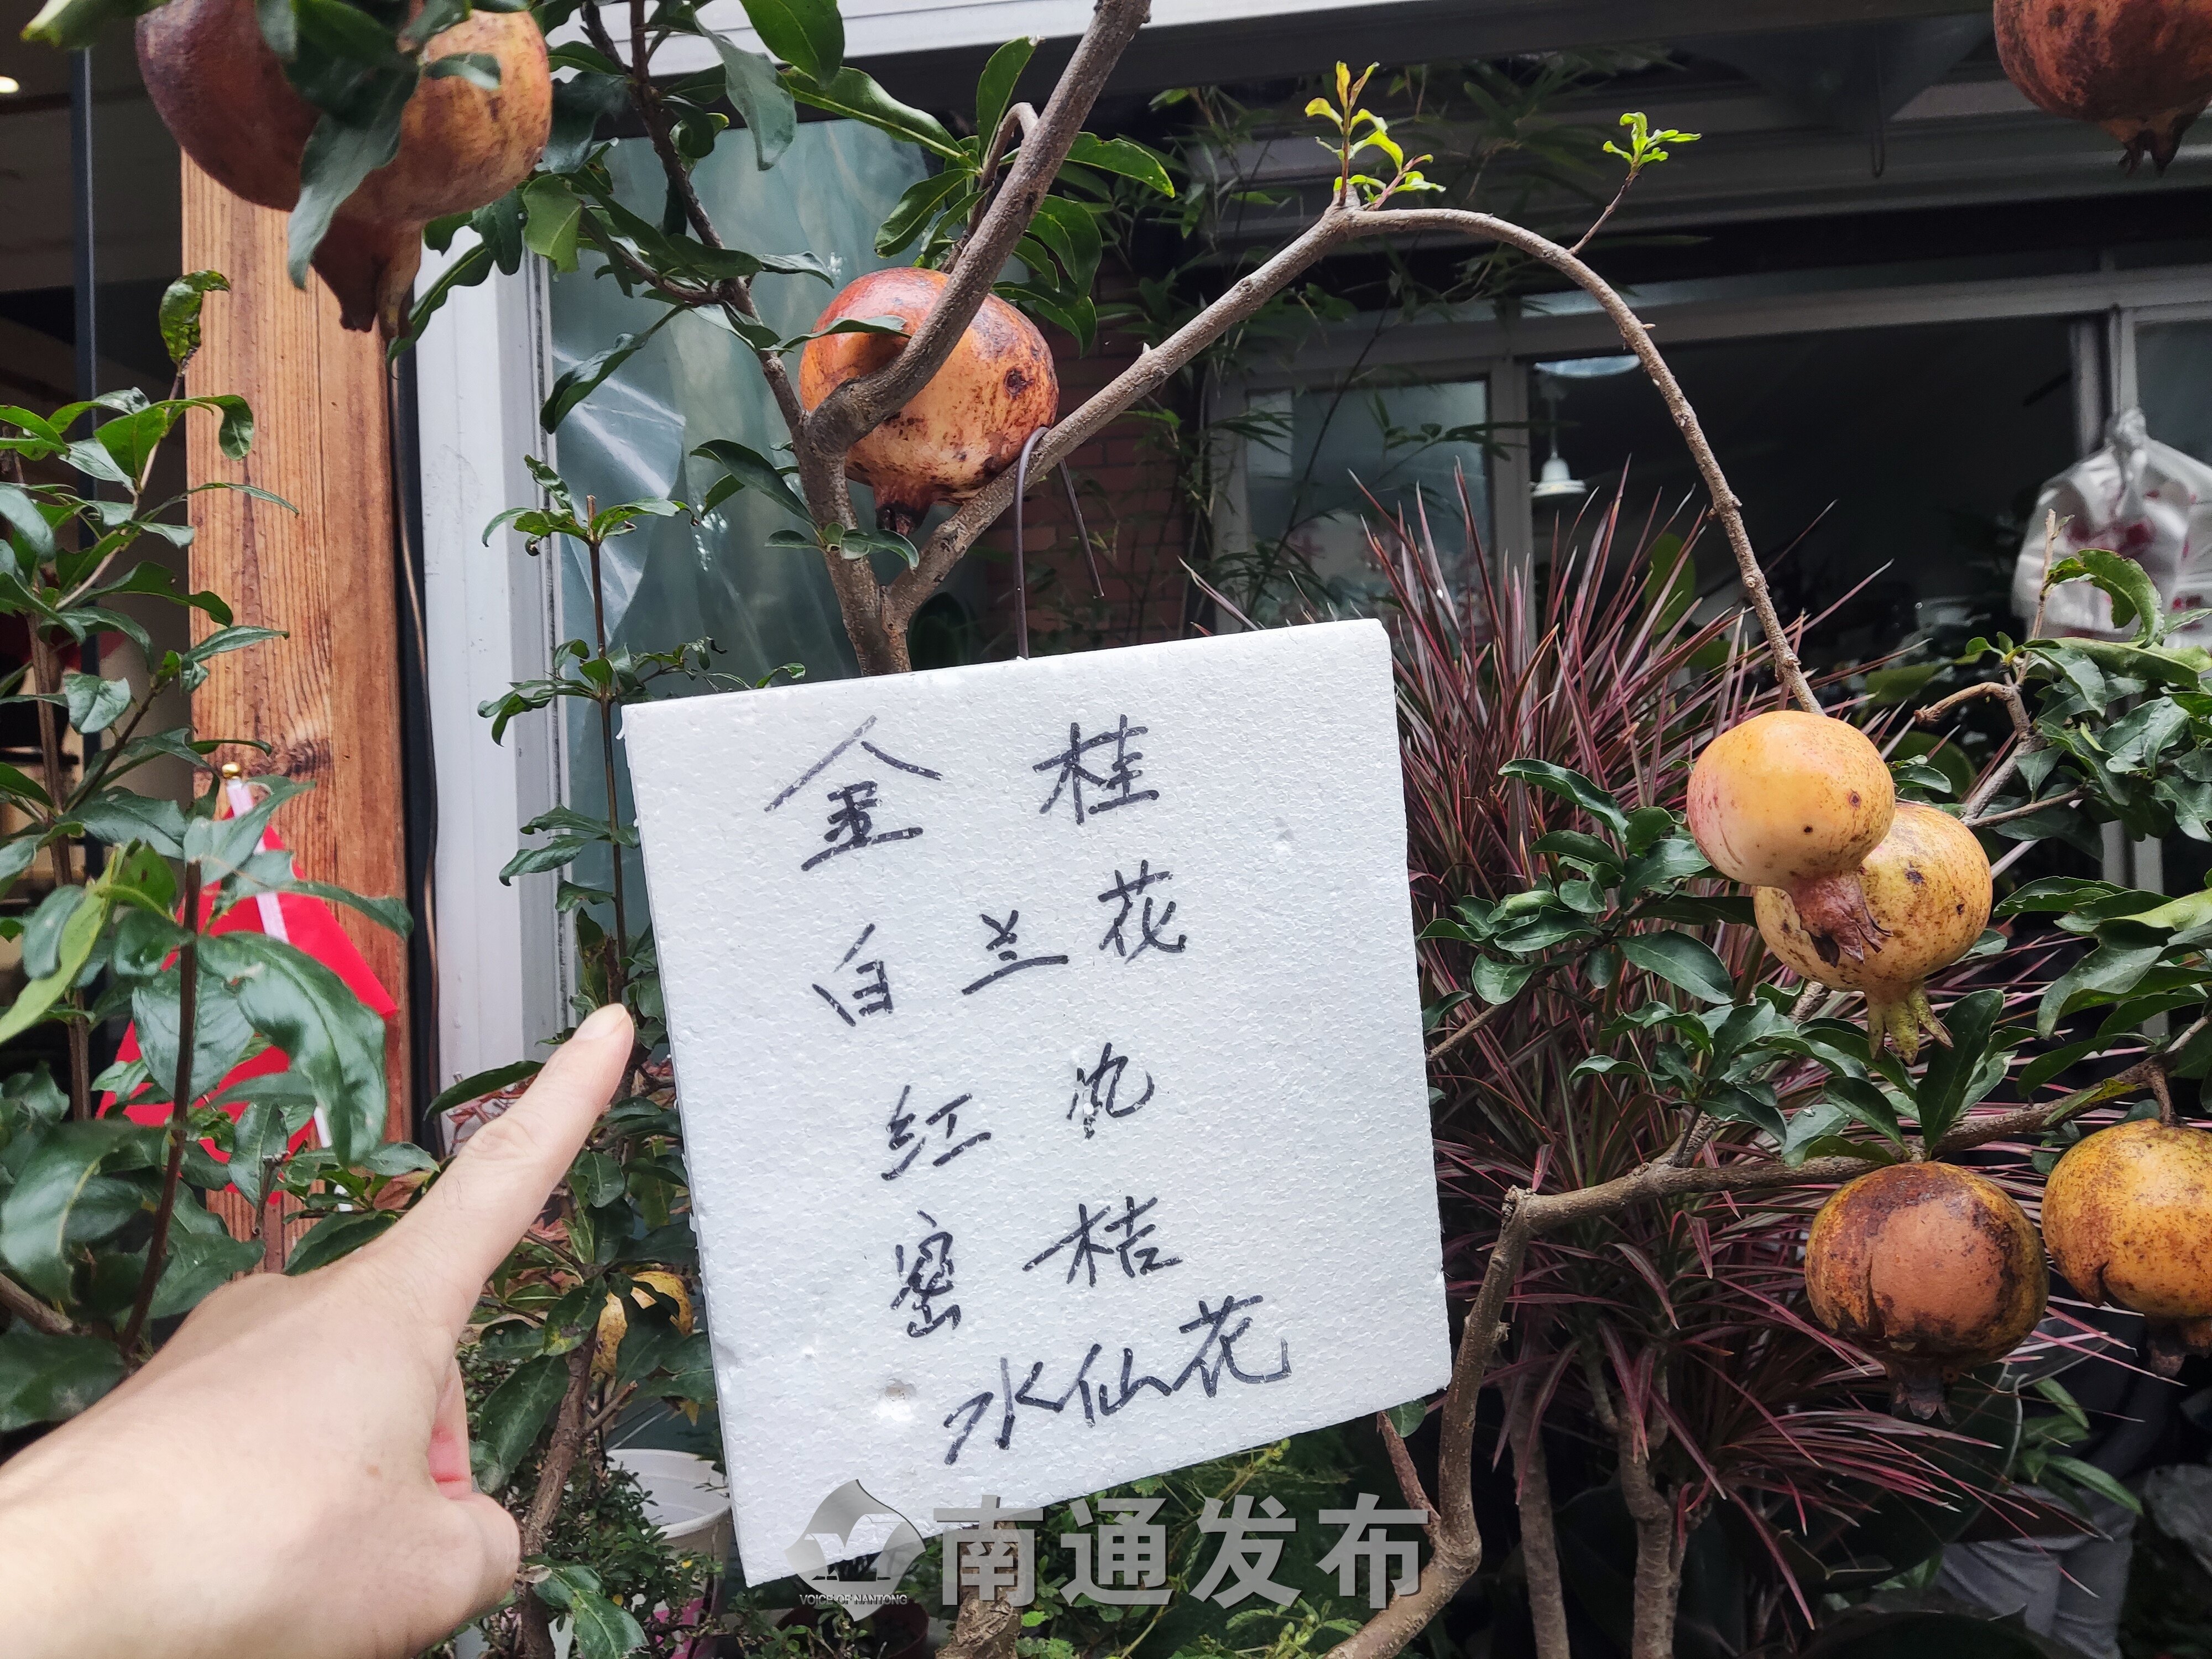 金桂
白兰花
红沈
蜜桔
水仙花
南通发布
VOICE OF NANTONG